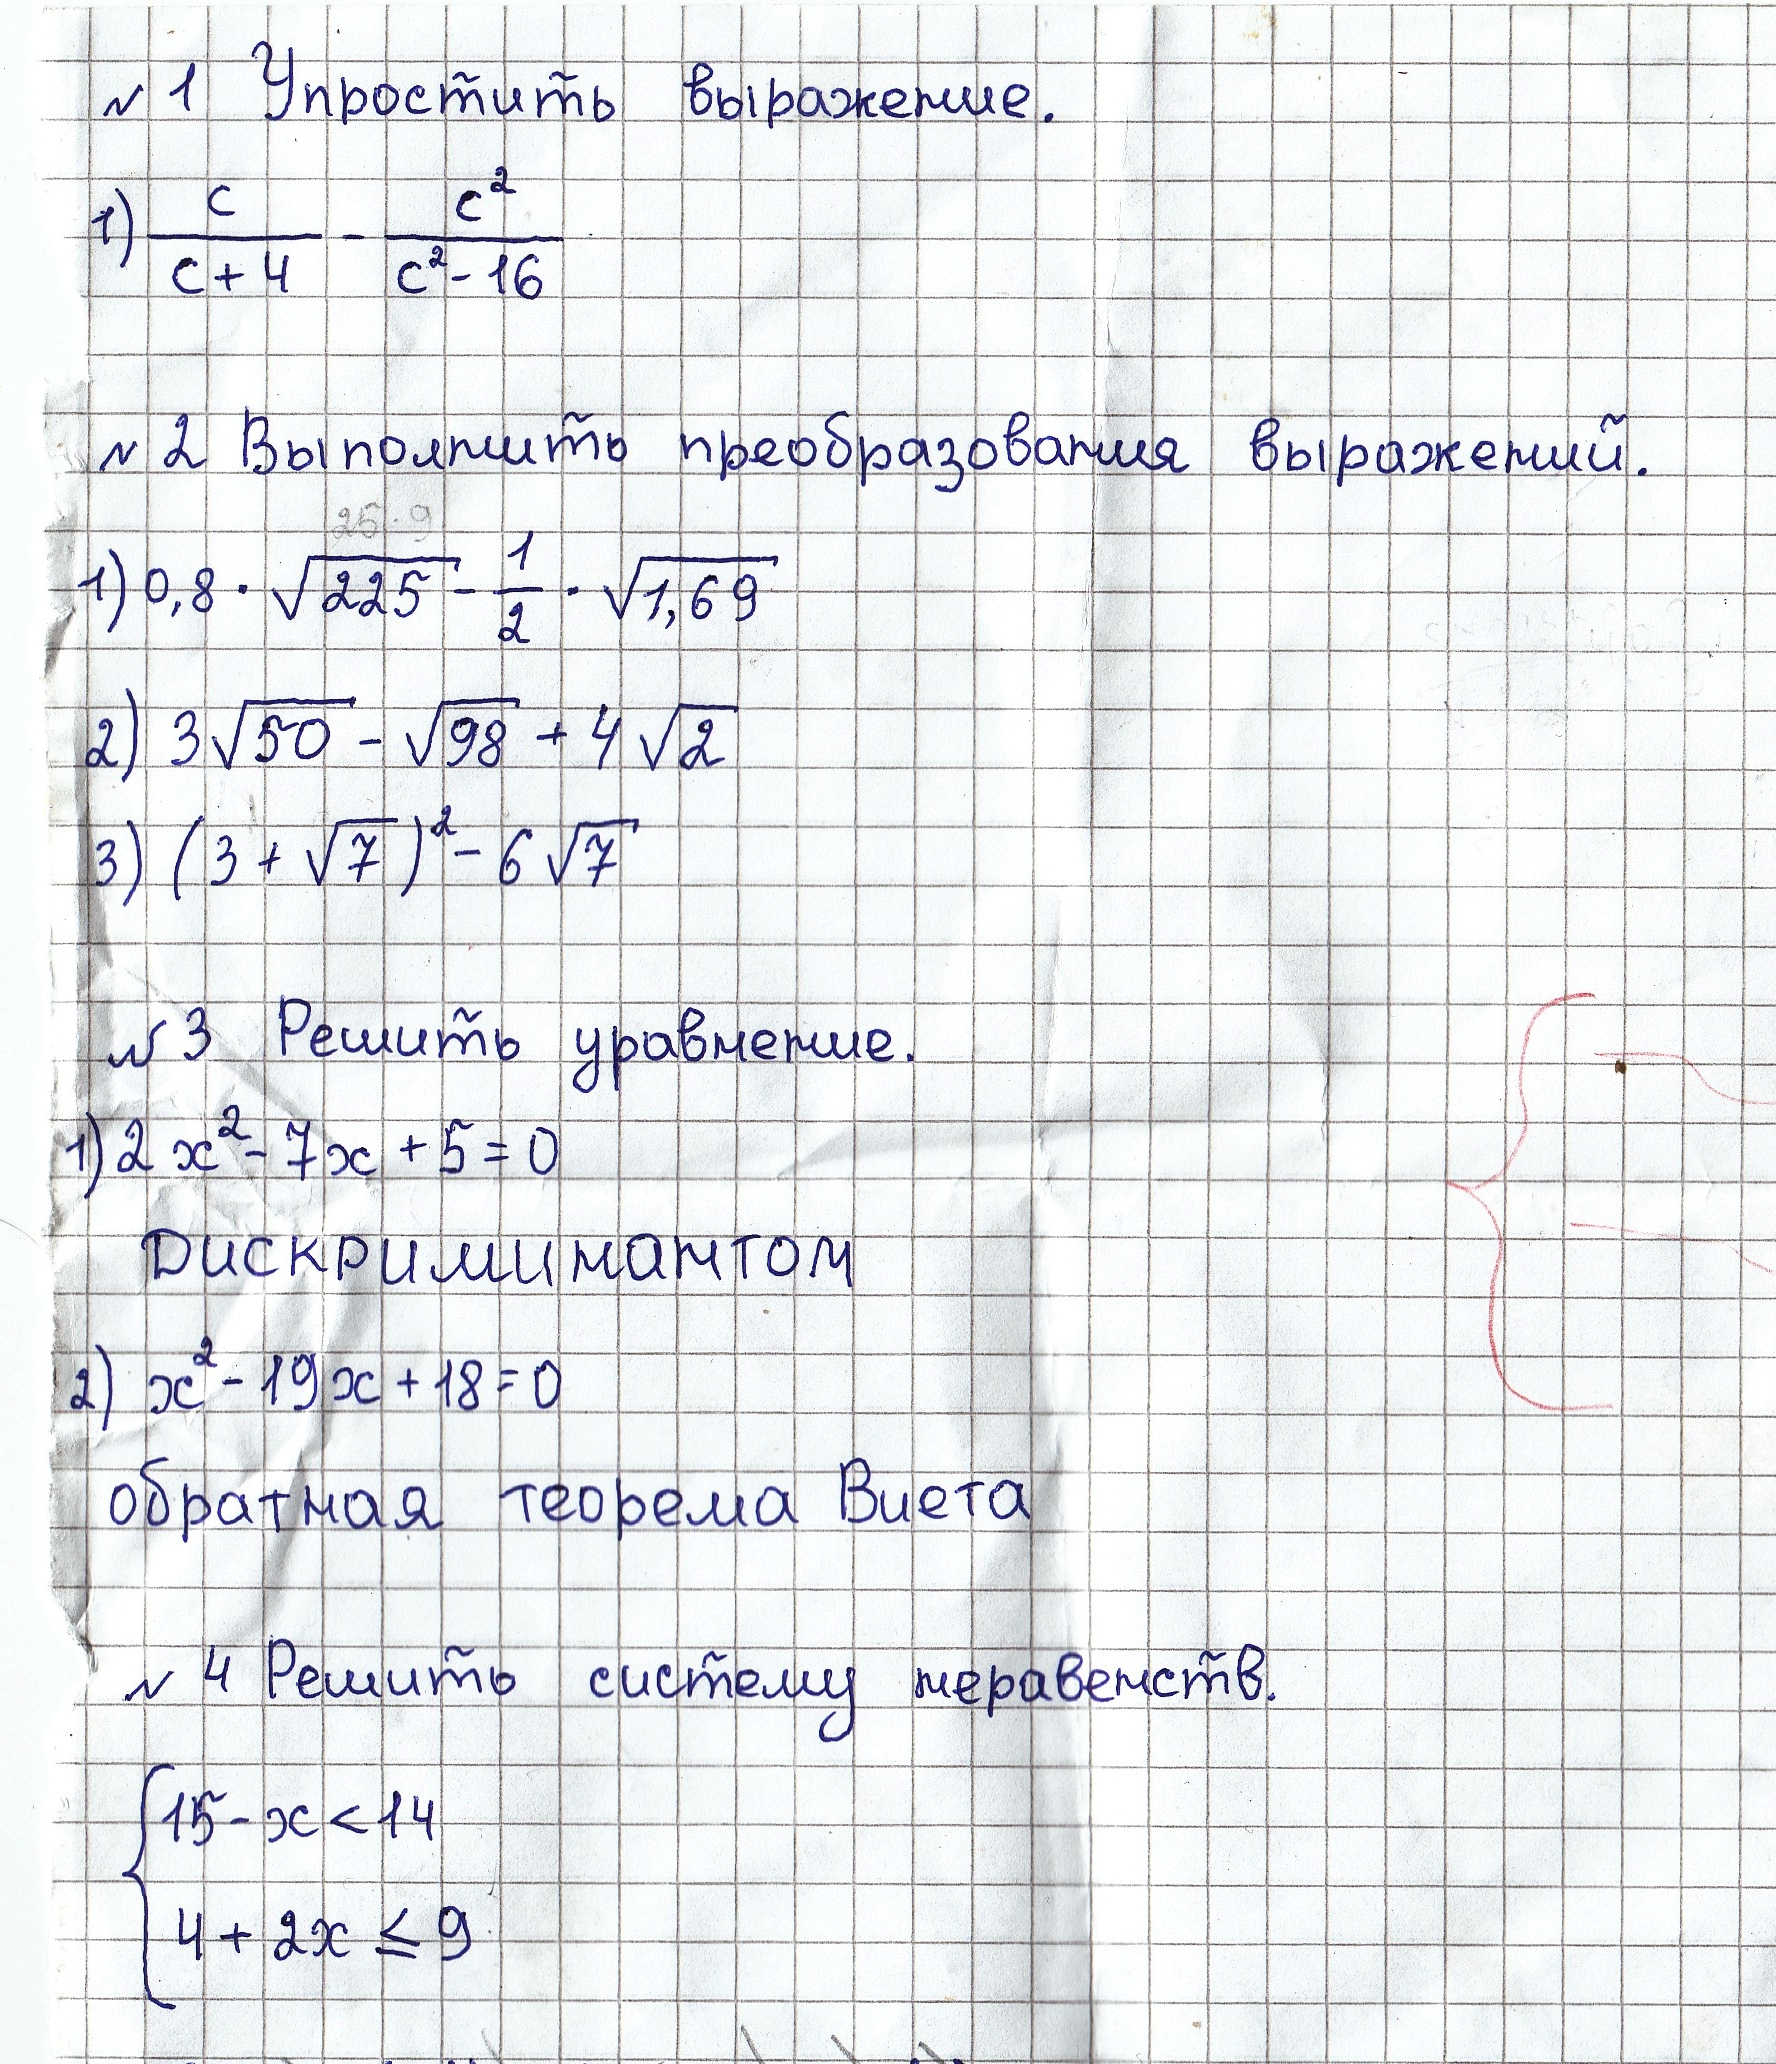 №1 Упростить выражение.
1) c/(c+4) - c²/(c²-16)
№2 Выполнить преобразования выражений.
25·9
1) 0,8·√225 - 1/2·√1,69
2) 3√50 - √98 + 4√2
3) (3+√7)² - 6√7
№3 Решить уравнение.
1) 2x² - 7x + 5 = 0
Дискриминантом
2) x² - 19x + 18 = 0
обратная теорема Виета
№4 Решить систему неравенств.
{15 - x < 14
4 + 2x ≤ 9